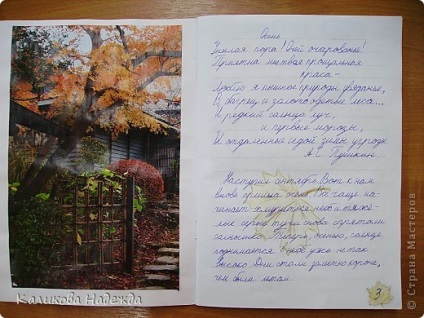 Осень
Унылая пора! Очей очарованье!
Приятна мне твоя прощальная
краса -
Люблю я пышное природы увяданье,
В багрец и золото одетые леса...
И редкий солнца луч,
и первые морозы,
И отдаленные седой зимы угрозы
А.С. Пушкин.
Наступил сентябрь. Вот к нам
вновь пришла осень. Всё чаще на-
чинает хмуриться небо и тяжё-
лые серые тучи снова спрятали
солнышко. Теперь, осенью, солнце
поднимается в небе уже не так
высоко. Дни стали заметно короче,
чем были летом.
9
Каликова Надежда
© Страна Мастеров